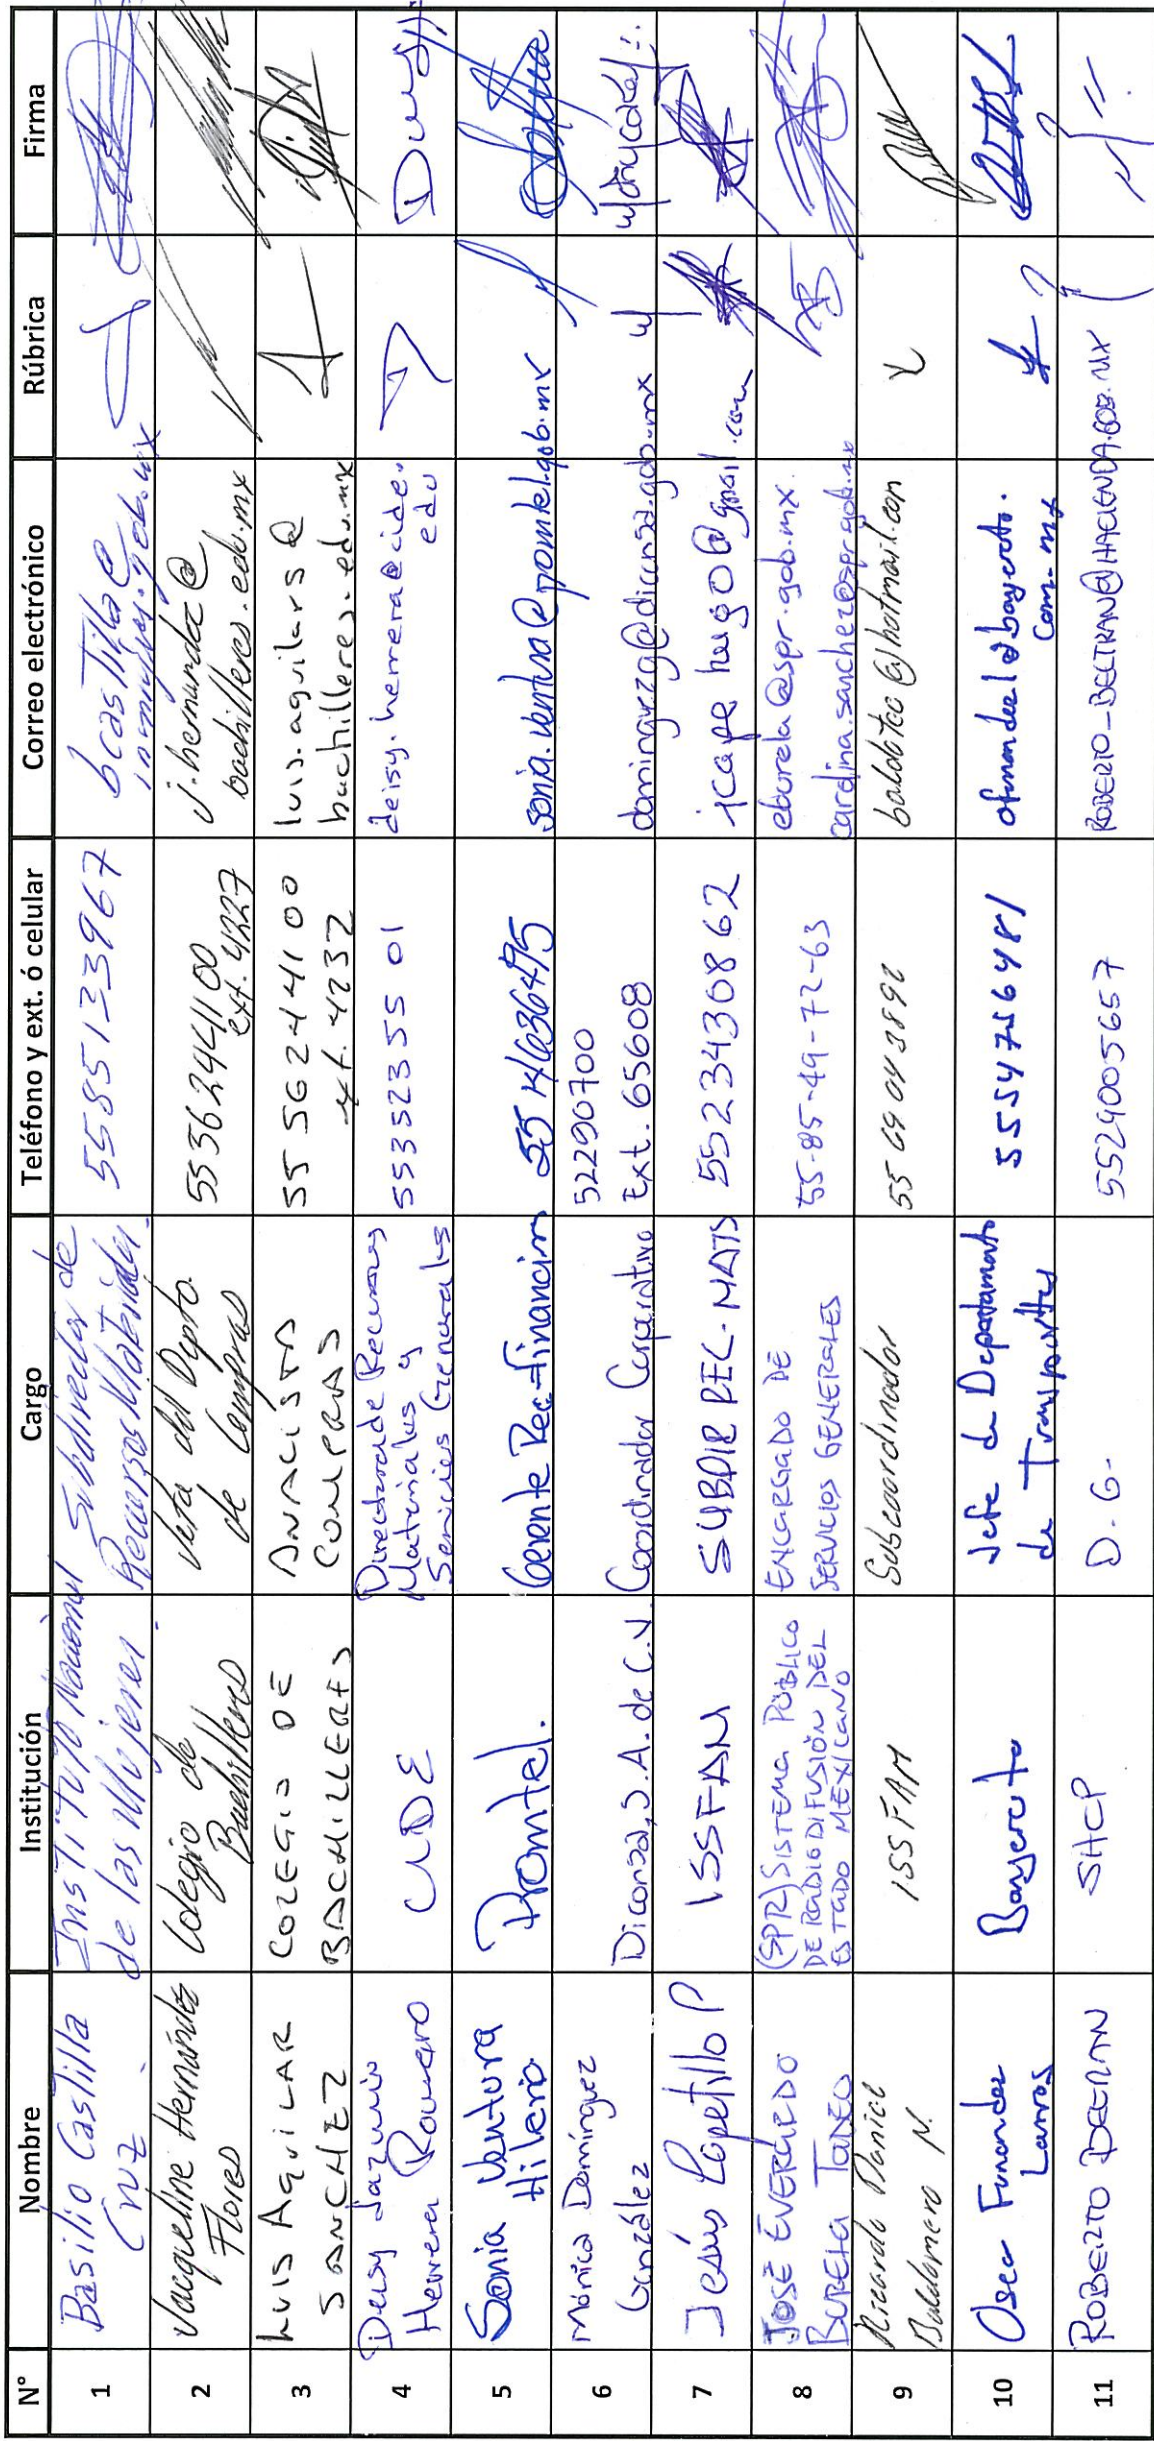 N° Nombre Institución Cargo Teléfono y ext. ó celular Correo electrónico Rúbrica Firma
1
Basilio Castilla
Cruz
Instituto Nacional
de las Mujeres.
Subdirector de
Recursos Materiales.
5585133967
bcastilla@
inmujeres.gob.mx
2
Jacqueline Hernández
Flores
Colegio de
Bachilleres
Jefa del Dpto.
de Compras
5556244100
ext. 4227
j.hernandez@
bachilleres.edu.mx
3
LUIS AGUILAR
SANCHEZ
COLEGIO DE
BACHILLERES
ANALISTA
COMPRAS
55 5624 41 00
ext. 4232
luis.aguilars@
bachilleres.edu.mx
4
Deisy Jazmin
Herrera Romero
CIDE
Directora de Recursos
Materiales y
Servicios Generales
55352355 01
deisy.herrera@cide.
edu
5
Sonia Ventura
Hilario.
Promtel.
Gerente Rec. Financieros
55 14636475
sonia.ventura@promtel.gob.mx
6
Mónica Domínguez
González
Diconsa, S.A. de C.V.
Coordinador Corporativo
52290700
Ext. 65608
dominguezg@diconsa.gob.mx
7
Jesús Capetillo P
ISSFAM
SUBDIR REC. MATS
5523430862
jcape hugo@gmail.com
8
JOSÉ EVERARDO
BURELA TADEO
(SPR) SISTEMA PÚBLICO
DE RADIODIFUSIÓN DEL
ESTADO MEXICANO
ENCARGADO DE
SERVICIOS GENERALES
55-85-49-72-63
eburela@spr.gob.mx.
cardina.sanchez@spr.gob.mx
9
Ricardo Daniel
Baldomero N.
ISSFAM
Subcoordinador
55 69 04 3892
baldatco@hotmail.com
10
Oscar Fernandez
Lamos
Banjercito
Jefe de Departamento
de Transportes
5554756481
ofernandezl@banjercito.
com.mx
11
ROBERTO BELTRAN
SHCP
D. G.
5529005657
ROBERTO_BELTRAN@HACIENDA.GOB.MX